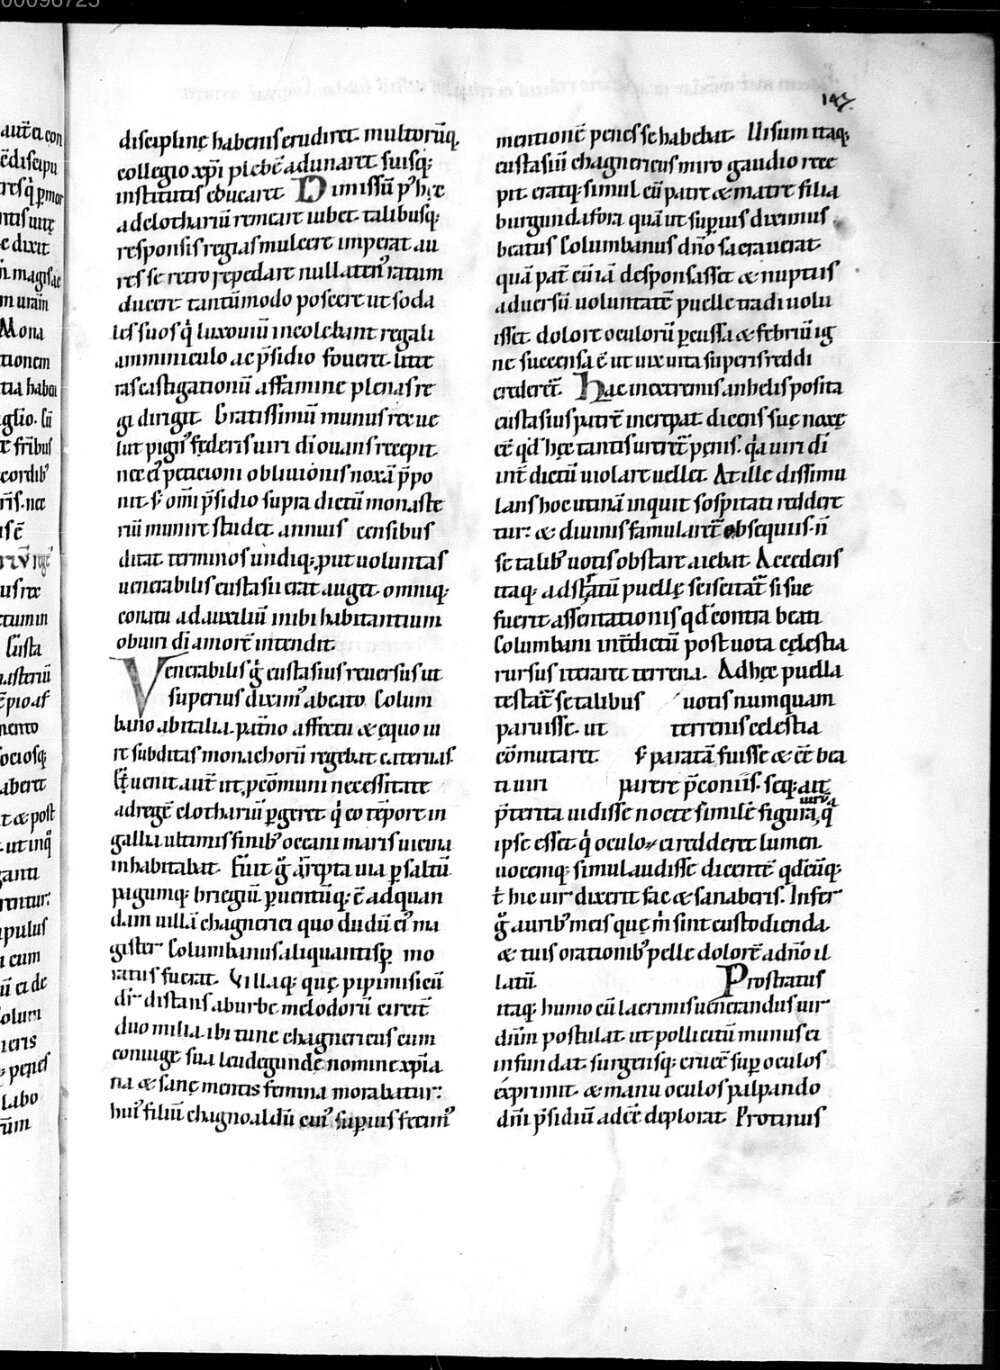 00098725
147
aut̄ ei con
ēdiscipu
resq̇ ꝑmor
ntis uitę
e dixit
n̄ magisae
m uiam
Mona
tionem
tia haben
glio. Cū
e fr̄ibus
cordib᷒
r̄is. nec
isē
rūm rege᷒
us rex
ctum in
Cūsta
nasteriū
mento
ociosq;
aberet
t & post
ut inq̇
ganti
rentur.
pulus
a cum
ū ei de
olum
neris
penes
labo
rūm
disciplinę habenis erudiret. multorūq;
collegio xp̄i plebē adunaret suisq;
institutis educaret. Dimissū p᷒ hęc
ad clothariū remeare iubet. talibusq;
responsis regias mulcere imperat au
res se retro repedare nullaten᷒ ratum
ducere. tantūmodo poscere ut soda
les suos q̇ luxouiū incolebant regali
amminiculo ac p̄sidio foueret. litte
ras castigationū affamine plenas re
gi dirigit. Gratissimū munus rex ue
lut pign᷒ fęderis uiri dī ouans recepit.
nec ei᷒ peticioni obliuionis noxā p̄po
nit. s; om̄i p̄sidio supra dictū monaste
riū munire studet. annuis censibus
ditat. terminos undiq; put uoluntas
uenerabilis eustasii erat auget. omniq;
conatu ad auxiliū inibi habitantium
ob uiri dī amorē intendit.
Venerabilis ġ eustasius reuersus ut
superius dixim᷒ a beato Colum
bano ab italia. pat̄no affectu & ęquo iu
re subditas monachorū regebat cateruas.
Cūtuenit aut̄ ut ꝓ cōmuni necessitate
ad regē clothariū ꝑgeret. q̇ eo tēpore in
gallia ultimis finib᷒ oceani maris uicina
inhabitabat. Fuit ġ arrepta uia ꝑ saltū
pagumq; briegiū ꝑuentūq; ē ad quan
dam uillā chagnerici quo dudū ei᷒ ma
gister Columbanus aliquantisꝑ mo
ratus fuerat. Villaq; quę pipimisicū
dr̄ distans ab urbe melodorū circit̄
duo milia. ibi tunc chagnericus cum
coniuge sua leudegundę nomine xp̄ia
na & sanę mentis femina morabatur.
hui᷒ filiū chagnoaldū cui᷒ superius fecim᷒
mentionē penes se habebat. Uisum itaq;
eustasiū chagnericus miro gaudio rece
pit. eratq; simul cū patre & matre filia
burgundafora quā ut superius diximus
beatus Columbanus dn̄o sacrauerat.
quā pat̄ cū iā desponsasset & nuptiis
aduersū uoluntatē puelle tradi uolu
isset. dolore oculorū ꝑcussa & febriū ig
ne succensa ē ut uix uita superis reddi
crederet̄. hac in extremis anhelis posita
eustasius patrē increpat. dicens suę noxę
eē qd̄ hęc tantis ureret̄ penis. q̇a uiri dī
int̄dictū uiolare uellet. At ille dissimu
lans hoc utinā inquit sospitati reddere
tur. & diuinis famularet̄ obsequiis. n̄
se talib᷒ uotis obstare aiebat. Accedens
itaq; ad stratū puellę sciscitat̄ si sue
fuerit assentationis qd̄ contra beati
Columbani int̄dictū post uota cęlestia
rursus iteraret terrena. Ad hęc puella
testat̄ se talibus uotis numquam
paruisse. ut terrenis celestia
cōmutaret. s; paratā fuisse & eē bea
ti uiri parere p̄coniis. seq; ait
p̄terita uidisse nocte similē figurā uirū q̇
ipse esset q̇ oculo ei redderet lumen.
uocemq; simul audisse dicentē qdcūq;
t̄ hic uir dixerit fac & sanaberis. Infer
ġ aurib᷒ meis quę m̄ sint custodienda
& tuis orationib᷒ pelle dolorē a dn̄o il
latū. Prostratus
itaq; humo cū lacrimis uenerandus uir
dn̄m postulat. ut pollicitū munus ei
infundat. surgensq; crucē suꝑ oculos
exprimit. & manu oculos palpando
dn̄i p̄sidiū adeē deplorat. Protinus